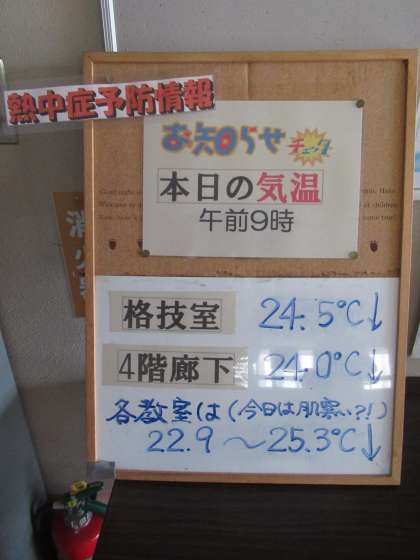 熱中症予防情報
お知らせ
チェック
本日の気温
午前9時
格技室 24.5℃↓
4階廊下 24.0℃↓
各教室は(今日は肌寒い?!)
22.9～25.3℃↓
消火器